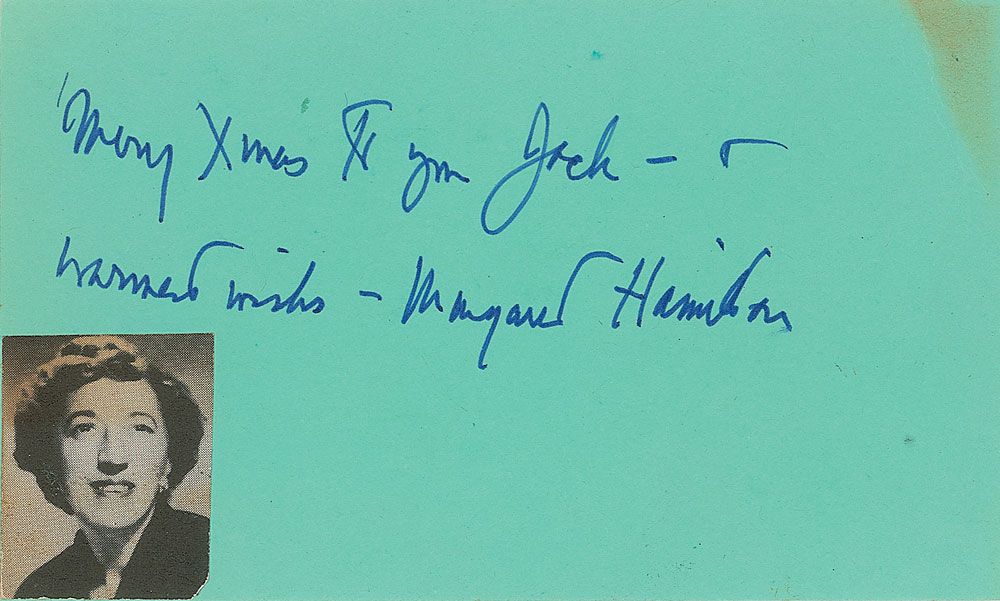 Merry Xmas to you Jack – &
warmest wishes – Margaret Hamilton